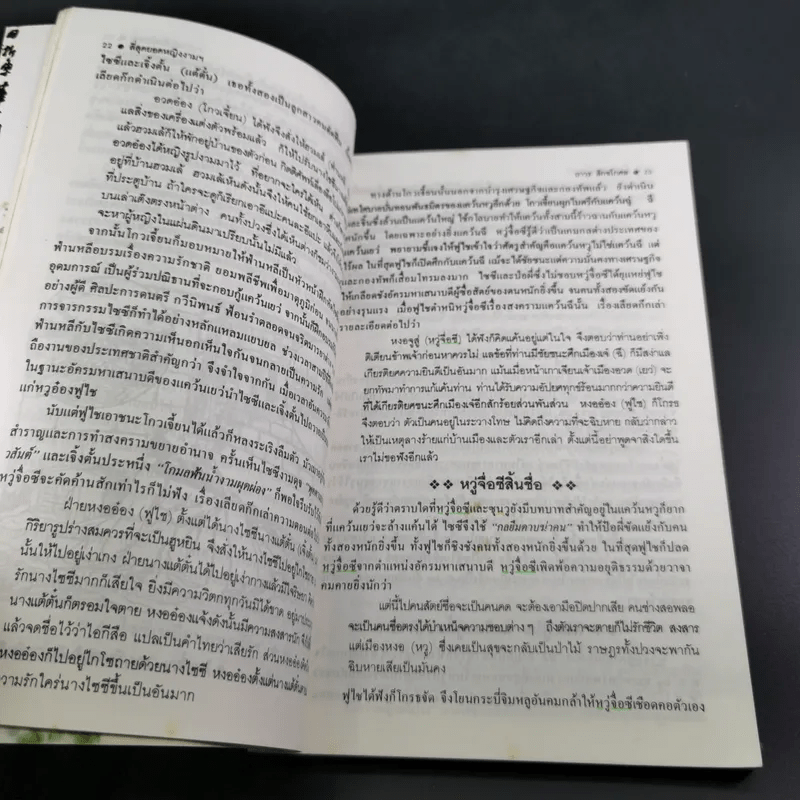 22 ● ที่สุดยอดหญิงงามฯ
ไซซีและเจิ้งตั้น (แต้ตั๋น) เธอทั้งสองเป็นลูกสาวคน
เลียดก๊กดำเนินต่อไปว่า
อวดอ๋อง (โกวเจี้ยน) ได้ฟังจึงสั่งให้ฮวมเล้
แลสิ่งของเครื่องแต่งตัวพร้อมแล้ว ก็ให้ไปรับนาง
แล้วฮวมเล้ก็ให้พักอยู่บ้านของตัวก่อน กิตติศัพท์เลื่อง
อวดอ๋องได้หญิงรูปงามมาไว้ ที่อยากจะใคร่ได้เห็น
อยู่ที่บ้านฮวมเล้ ฮวมเล้เห็นดังนั้นจึงให้คนใช้ยกเอา
ที่ประตูบ้าน ถ้าใครจะดูก็เรียกเอาอีแปะคนละอีแปะ แล้ว
บนเล่าเต๊งตรงหน้าต่าง คนทั้งปวงซึ่งได้เห็นต่าง
จะหาผู้หญิงในแผ่นดินมาเปรียบนั้นไม่มีแล้ว
จากนั้นโกวเจี้ยนก็มอบหมายให้ฟ่านหลีเป็นหัวหน้า
ฟ่านหลีอบรมเรื่องความรักชาติ ยอมพลีชีพเพื่อมาตุภูมิก่อน
อุดมการณ์ เป็นผู้ร่วมปณิธานที่จะกอบกู้แคว้นเยว่ จากนั้นก็ฝึก
อย่างผู้ดี ศิลปะการดนตรี กวีนิพนธ์ ฟ้อนรำตลอดจนจริตมารยา
การจารกรรมไซซีก็ทำได้อย่างหลักแหลมแยบยล ช่วงเวลาสามปี
ฟ่านหลีกับไซซีเกิดความเห็นอกเห็นใจกันจนกลายเป็นความรัก
ถืองานของประเทศชาติสำคัญกว่า จึงจำใจจากกัน เมื่อเวลา
ในฐานะอัครมหาเสนาบดีของแคว้นเยว่นำไซซีและเจิ้งตั้นไปถวาย
แก่หวูอ๋องฟูไช
นับแต่ฟูไชเอาชนะโกวเจี้ยนได้แล้วก็หลงระเริงลืมตัว
สำราญและการทำสงครามขยายอำนาจ ครั้นเห็นไซซีงามดุจ
และเจิ้งตั้นประหนึ่ง "โกมลพ้นน้ำงามผุดผ่อง" ก็พอใจรับไว้
หวู่จื่อซีจะคัดค้านสักเท่าไรก็ไม่ฟัง เรื่องเลียดก๊กเล่าความตอน
ฝ่ายหงออ๋อง (ฟูไช) ตั้งแต่ได้นางไซซีนางแต้ตั๋น
กิริยารูปร่างสมควรที่จะเป็นฮูหยิน จึงสั่งให้นางไซซีไปอยู่โกโซ
นั้นให้ไปอยู่เง่าเกง ฝ่ายนางแต้ตั๋นได้ไปอยู่เง่ากงแล้วมีใจริษยา
รักนางไซซีมากก็เสียใจ ยิ่งมีความวิตกทุกวันมิได้ขาด อยู่มา
นางแต้ตั๋นก็ตรอมใจตาย หงออ๋องแจ้งดังนั้นมีความสงสารนัก
แล้วจดชื่อไว้ว่าไอกีสือ แปลเป็นคำไทยว่าเสียรัก ส่วนหงออ๋อง
หงออ๋องก็ไปอยู่ไกโซถายด้วยนางไซซี หงออ๋องตั้งแต่นางแต้ตั๋น
ความรักใคร่นางไซซีขึ้นเป็นอันมาก
ทางด้านโกวเจี้ยนนั้นนอกจากบำรุงเศรษฐกิจและกองทัพแล้ว ยังดำเนิน
นโยบายบั่นทอนพันธมิตรของแคว้นหวูอีกด้วย โกวเจี้ยนผูกไมตรีกับแคว้นฉู่ ฉี
และจิ้นซึ่งล้วนเป็นแคว้นใหญ่ ใช้กโลบายทำให้แคว้นทั้งสามนี้ร้าวฉานกับแคว้นหวู
หนักขึ้น โดยเฉพาะอย่างยิ่งแคว้นฉี หวู่จื่อซีรู้ดีว่าเป็นเกมกลต่างประเทศของ
แคว้นเยว่ พยายามชี้แจงให้ฟูไชเข้าใจว่าศัตรูสำคัญคือแคว้นหวูไม่ใช่แคว้นฉี แต่
ไร้ผล ในที่สุดฟูไชก็เปิดศึกกับแคว้นฉี แม้จะได้ชัยชนะแต่ความมั่นคงทางเศรษฐกิจ
และกองทัพก็เสื่อมโทรมลงมาก ไซซีและป๋อผี่ซึ่งไม่ชอบหวู่จื่อซีได้ยุแหย่ฟูไช
ให้เกลียดชังอัครมหาเสนาบดีผู้ซื่อสัตย์ของตนหนักยิ่งขึ้น จนคนทั้งสองขัดแย้งกัน
อย่างรุนแรง เมื่อฟูไชตำหนิหวู่จื่อซีเรื่องสงครามแคว้นฉีนั้น เรื่องเลียดก๊กเล่า
รายละเอียดต่อไปว่า
หงอจูสู่ (หวู่จื่อซี) ได้ฟังก็คิดแค้นอยู่แต่ในใจ จึงตอบว่าท่านอย่าเพิ่ง
ติเตียนข้าพเจ้าก่อนหาควรไม่ แลข้อที่ท่านมีชัยชนะศึกเมืองเจ๋ (ฉี) ก็มีสง่าแล
เกียรติยศความยินดีเป็นอันมาก แม้นเมื่อหน้าเกาเจี๋ยนเจ้าเมืองอวด (เยว่) จะ
ยกทัพมาทำการแก้แค้นท่าน ท่านได้รับความอัปยศทุกข์ร้อนมากกว่าความยินดี
ที่ได้เกียรติยศชนะศึกเมืองเจ๋อีกสักร้อยส่วนพันส่วน หงออ๋อง (ฟูไช) ก็โกรธ
จึงตอบว่า ตัวเป็นคนอยู่ในระวางโทษ ไม่คิดถึงความที่จะฉิบหาย กลับว่ากล่าว
ให้เป็นเหตุลางร้ายแก่บ้านเมืองและตัวเราอีกเล่า ตั้งแต่นี้อย่าพูดจาสิ่งใดขึ้น
เราไม่ขอฟังอีกแล้ว
❖ หวู่จื่อซีสิ้นชื่อ ❖
ด้วยรู้ดีว่าตราบใดที่หวู่จื่อซีและซุนวูยังมีบทบาทสำคัญอยู่ในแคว้นหวูก็ยาก
ที่แคว้นเยว่จะล้างแค้นได้ ไซซีจึงใช้ "กลยืมดาบฆ่าคน" ทำให้ป๋อผี่ขัดแย้งกับคน
ทั้งสองหนักยิ่งขึ้น ทั้งฟูไชก็ชิงชังคนทั้งสองหนักยิ่งขึ้นด้วย ในที่สุดฟูไชก็ปลด
หวู่จื่อซีจากตำแหน่งอัครมหาเสนาบดี หวู่จื่อซีเพิดพ้อความอยุติธรรมด้วยวาจา
คมคายยิ่งนักว่า
แต่นี้ไปคนสัตย์ซื่อจะเป็นคนคด จะต้องเอามือปิดปากเสีย คนช่างสอพลอ
จะเป็นคนซื่อตรงได้บำเหน็จความชอบต่างๆ ถึงตัวเราจะตายก็ไม่รักชีวิต สงสาร
แต่เมืองหงอ (หวู) ซึ่งเคยเป็นสุขจะกลับเป็นป่าไม้ ราษฎรทั้งปวงจะพากัน
ฉิบหายเสียเป็นมั่นคง
ฟูไชได้ฟังก็โกรธจัด จึงโยนกระบี่จิมหลูอันคมกล้าให้หวู่จื่อซีเชือดคอตัวเอง